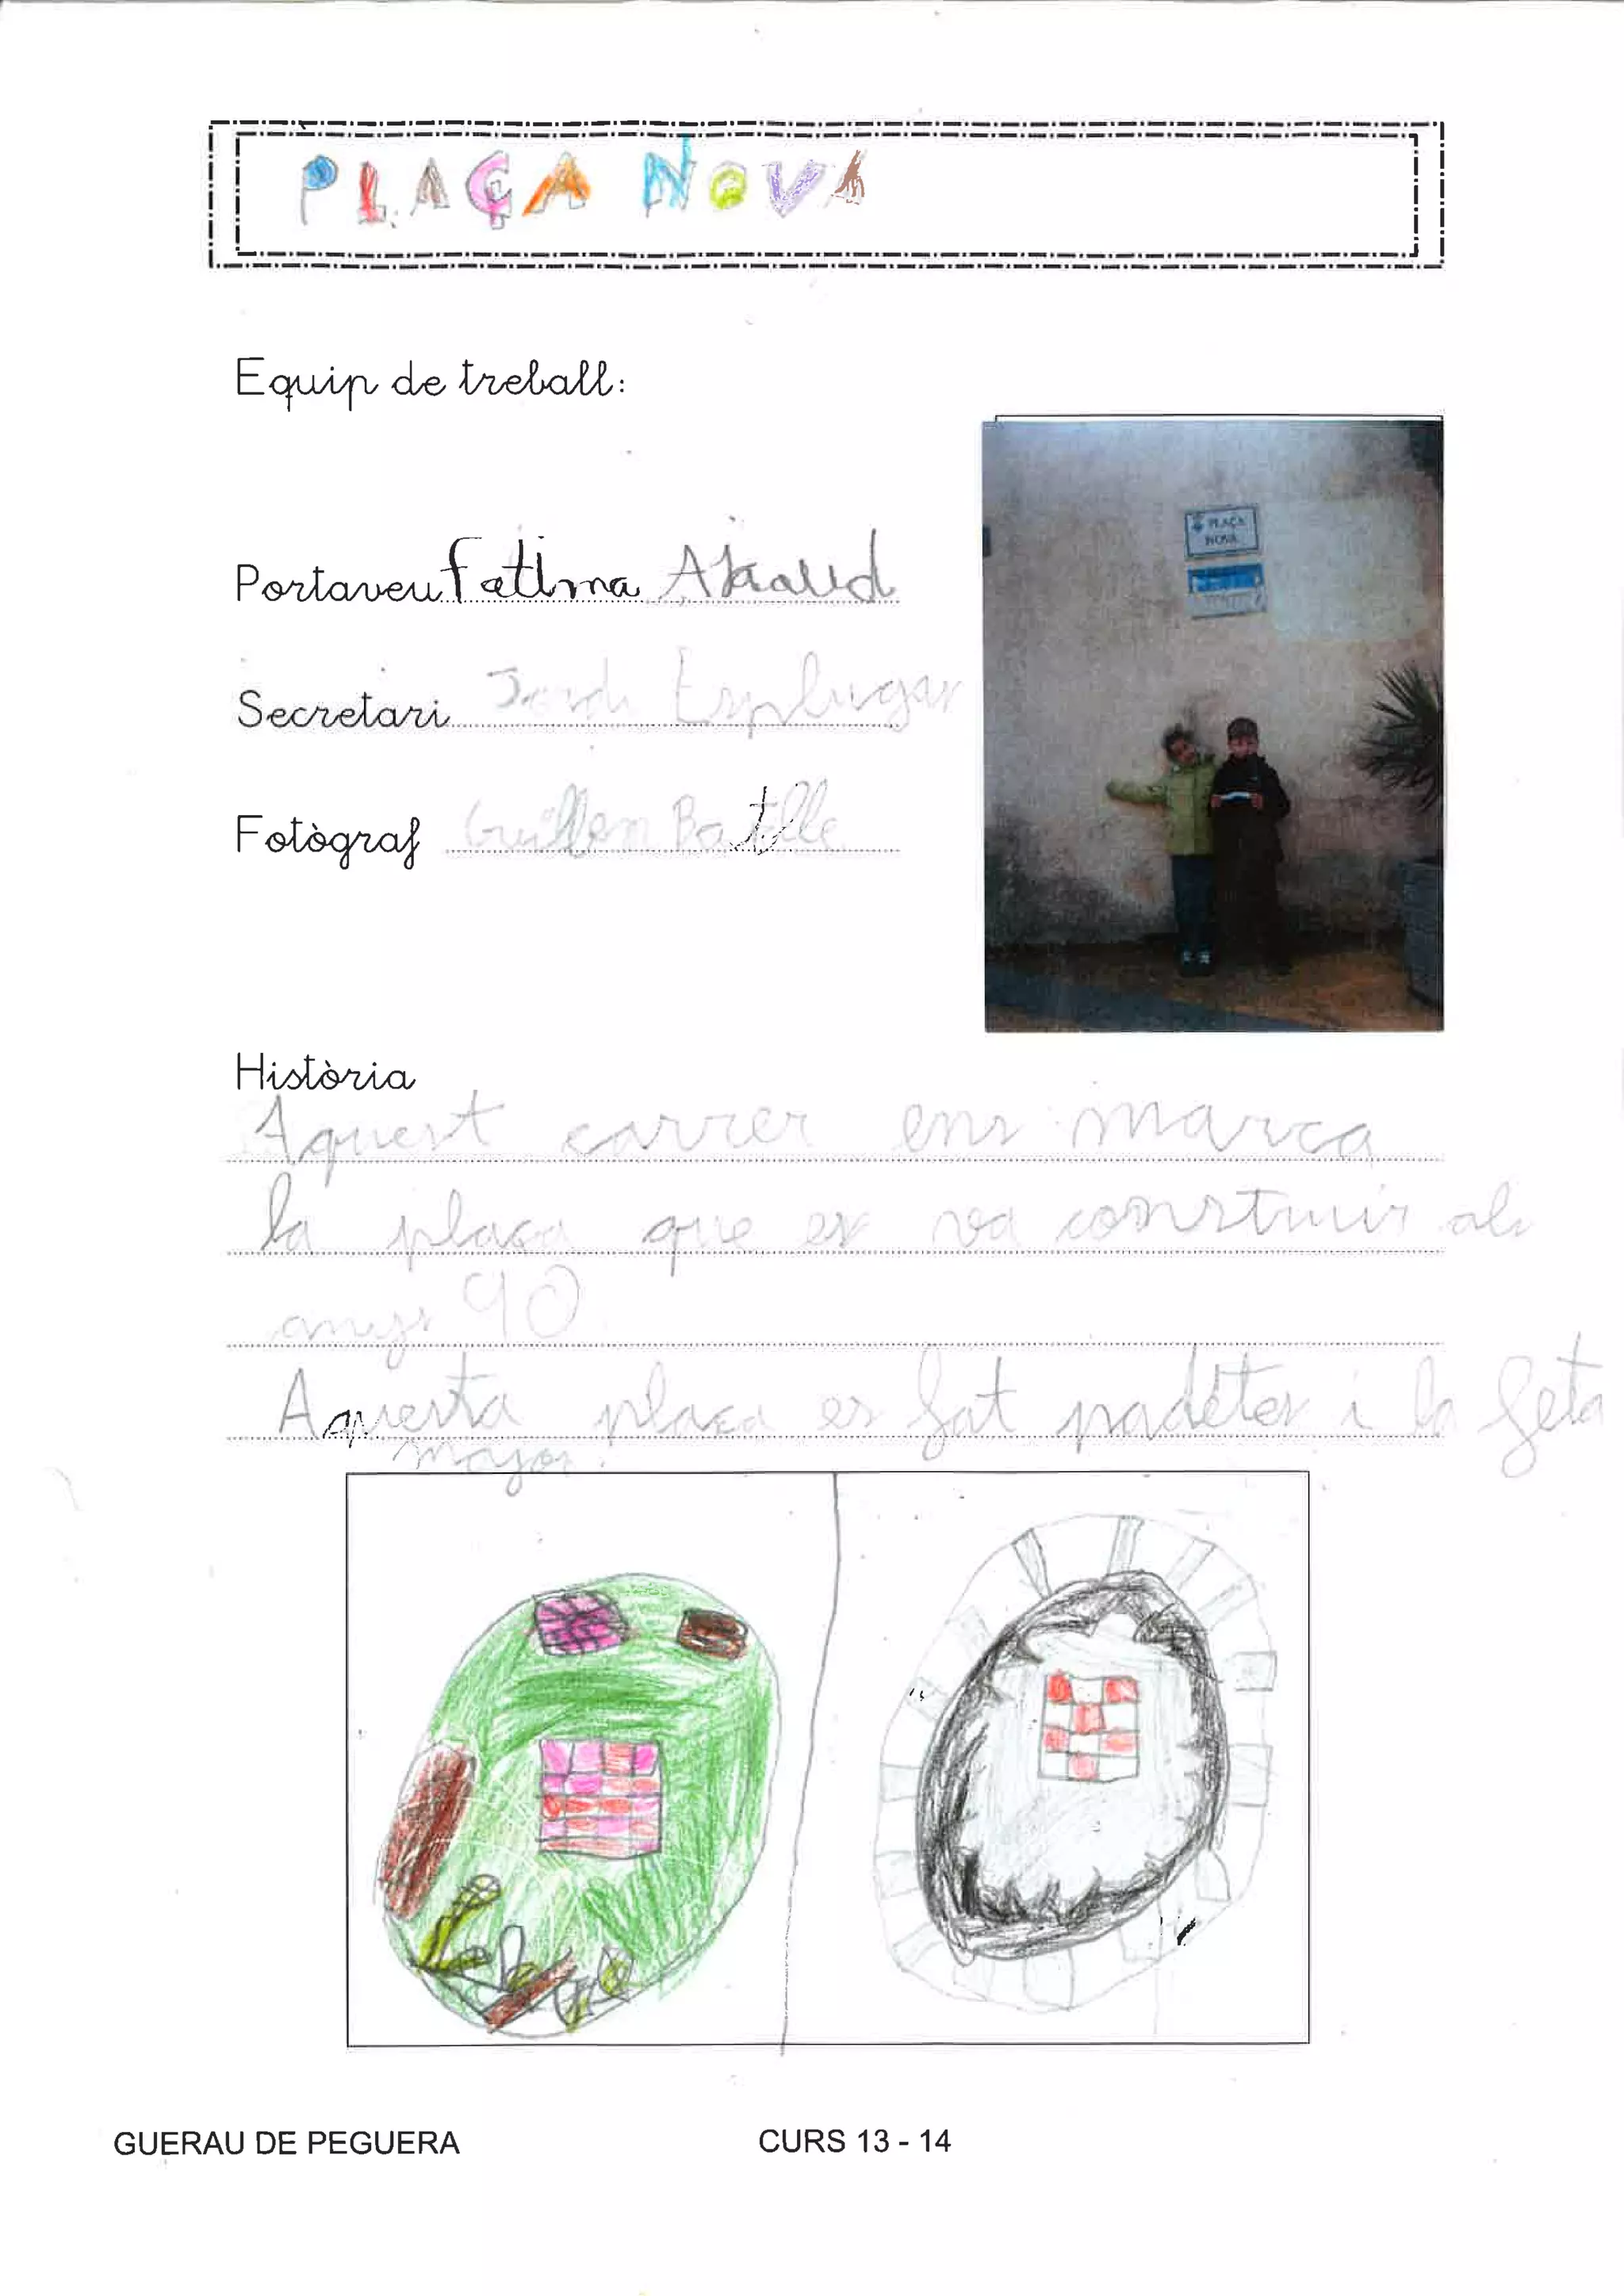 PLAÇA NOVA
Equip de treball:
PLAÇA
NOVA
Portaveu fatima
Secretari Jordi Esplugas
Fotògraf Guillem Batlle
Història
Aquest carrer ens marca
la plaça que es va construir als
anys 90
Aquesta plaça es fat padétes i la feta
major.
GUERAU DE PEGUERA CURS 13 - 14